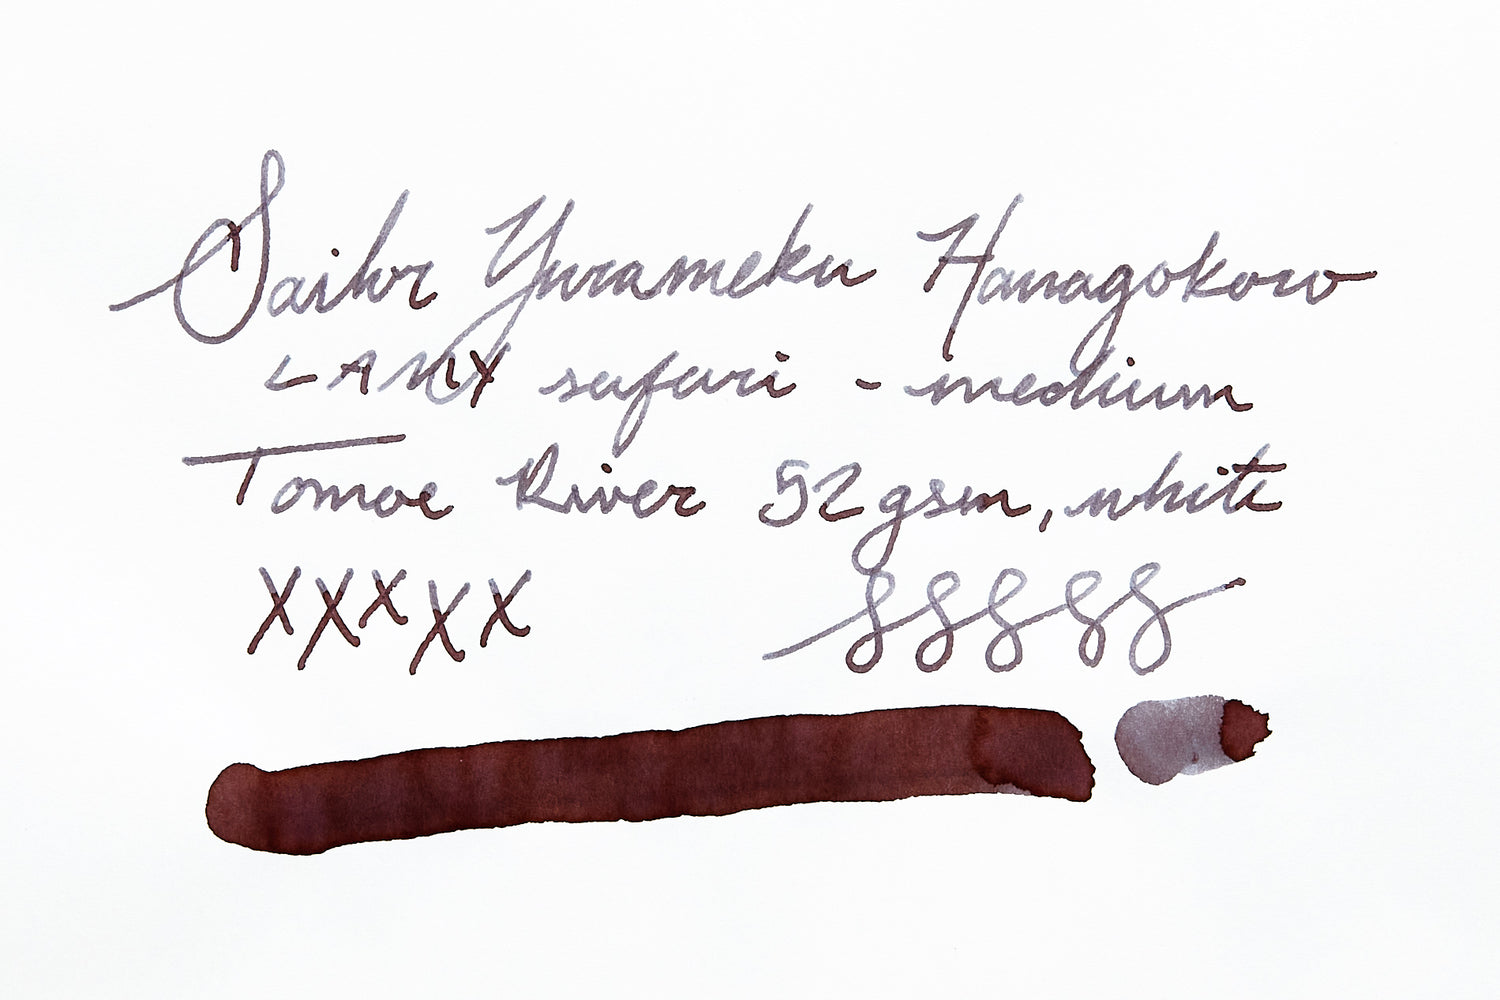 Sailor Yurameku Hanagokoro
LAMY safari - medium
Tomoe River 52gsm, white
XXXXX